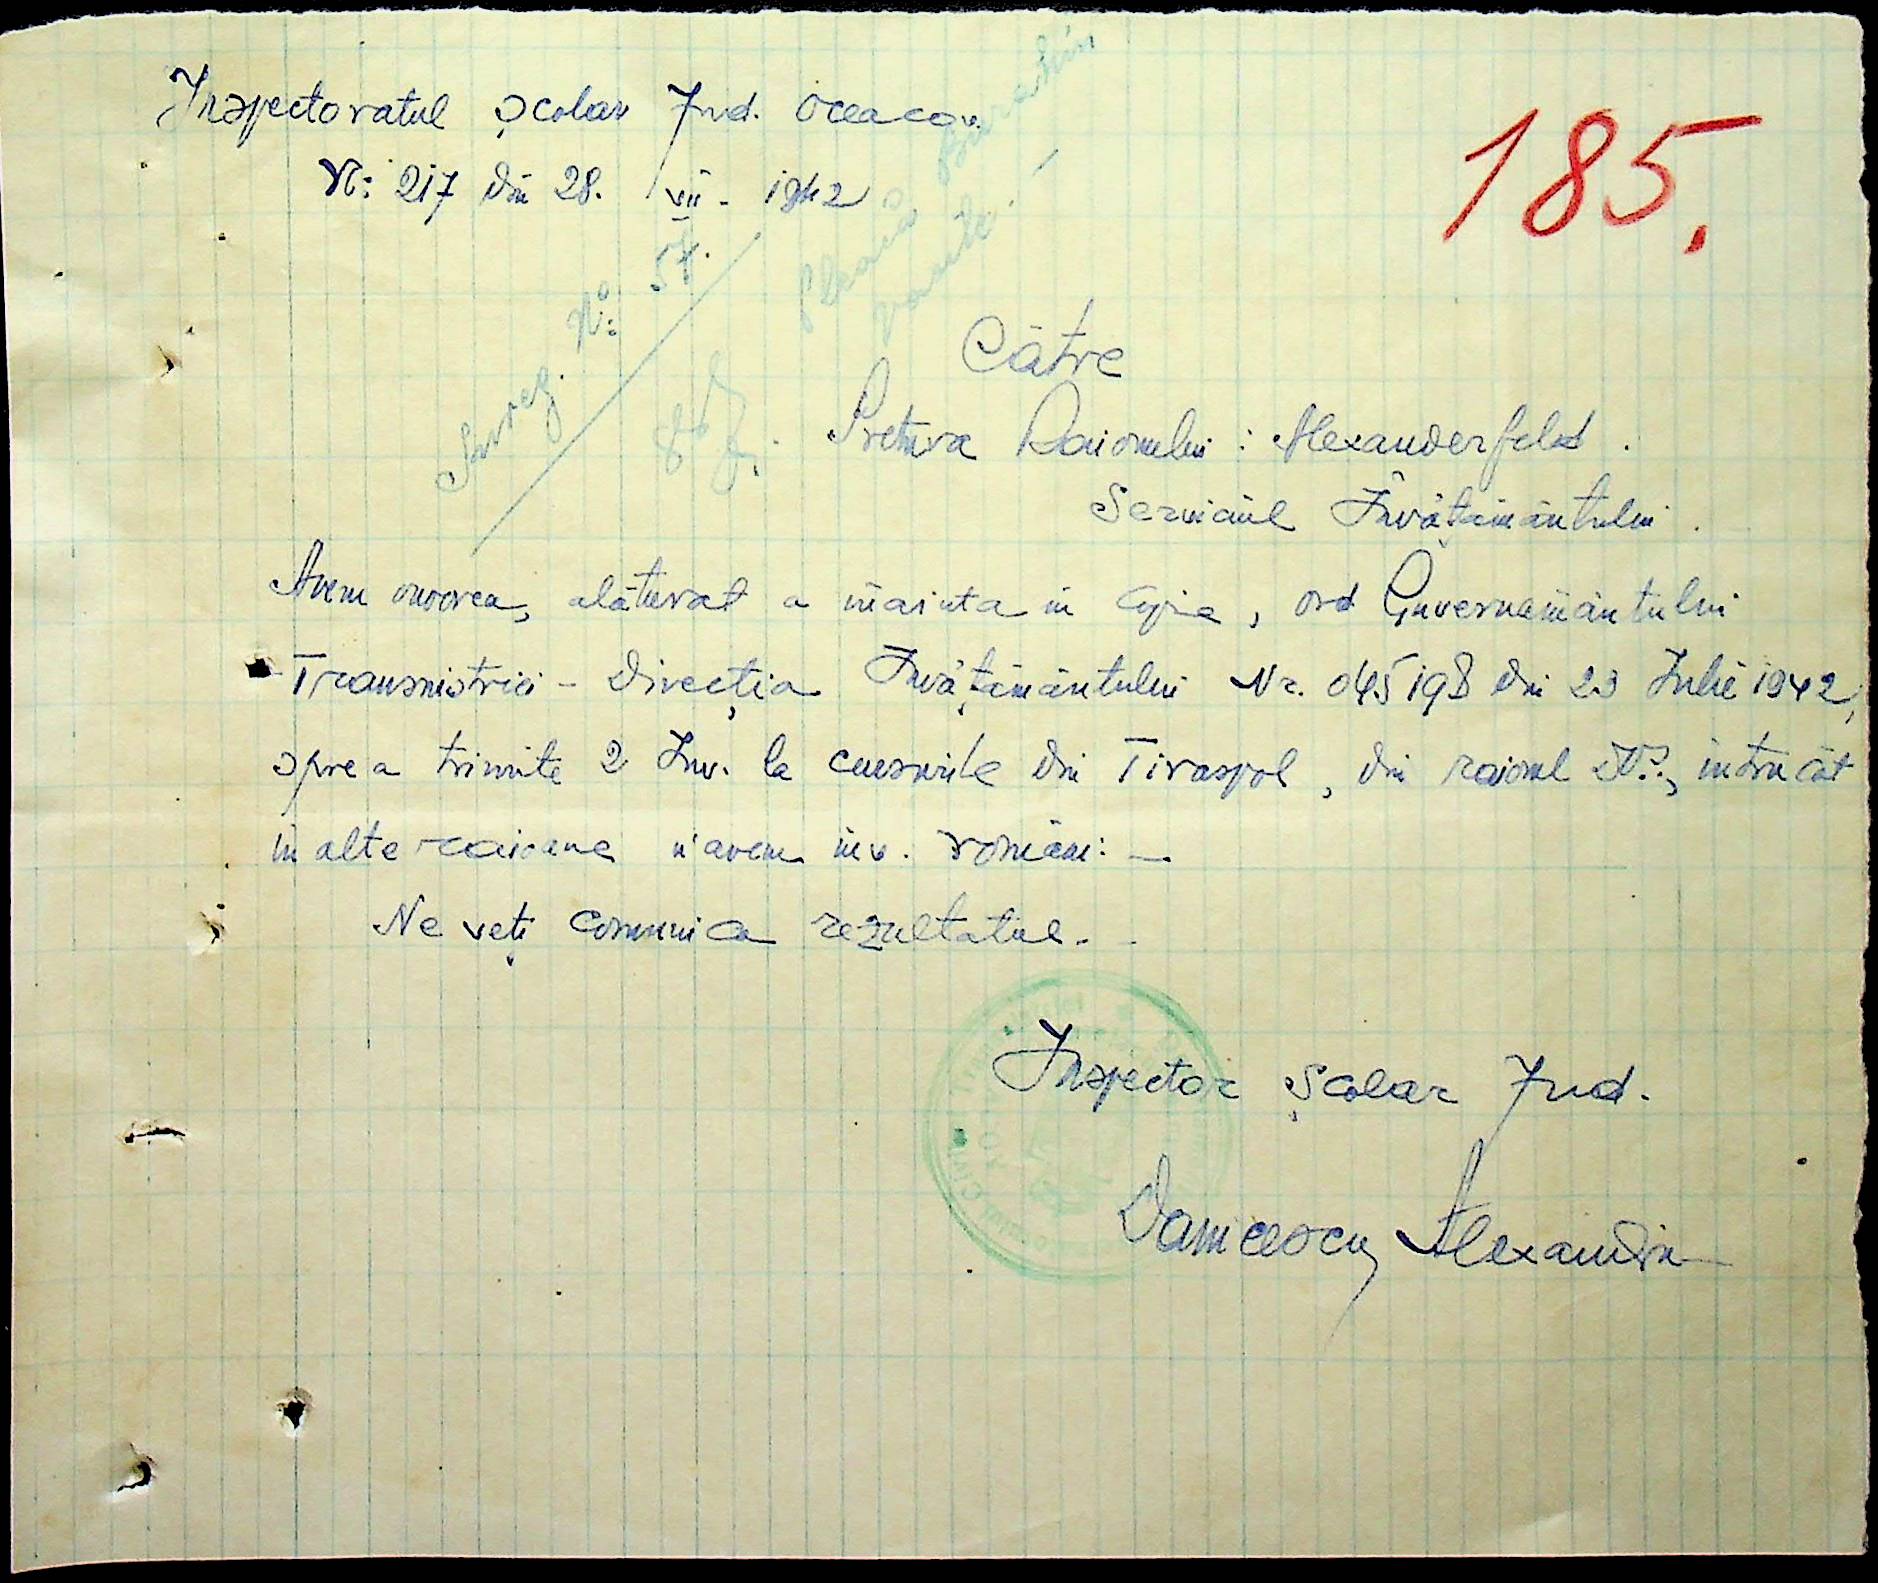 Inspectoratul Școlar Jud. Oceacov.
Nr: 217 din 28. VII - 1942
185.
Înreg. Nr: 57.
Către
Pretura Raionului : Alexanderfeld .
Serviciul Învățământului .
Avem onoarea, alăturat a înainta în copie, ord Guvernământului
Transnistriei - Direcția Învățământului Nr. 045198 din 23 Iulie 1942,
spre a trimite 2 Înv. la cursurile din Tiraspol, din raionul Dvs., întrucât
în alte raioane n'avem înv. români: —
Ne veți comunica rezultatul. -
Inspector Școlar Jud.
Danielescu Alexandru